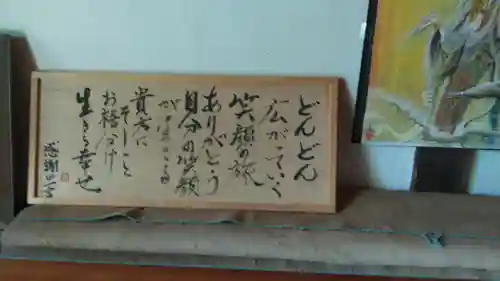 どんどん
広がっていく
笑顔の旅
ありがとう
自分の笑顔
が
貴方に
そして
お裾分け
生きる幸せ
感謝